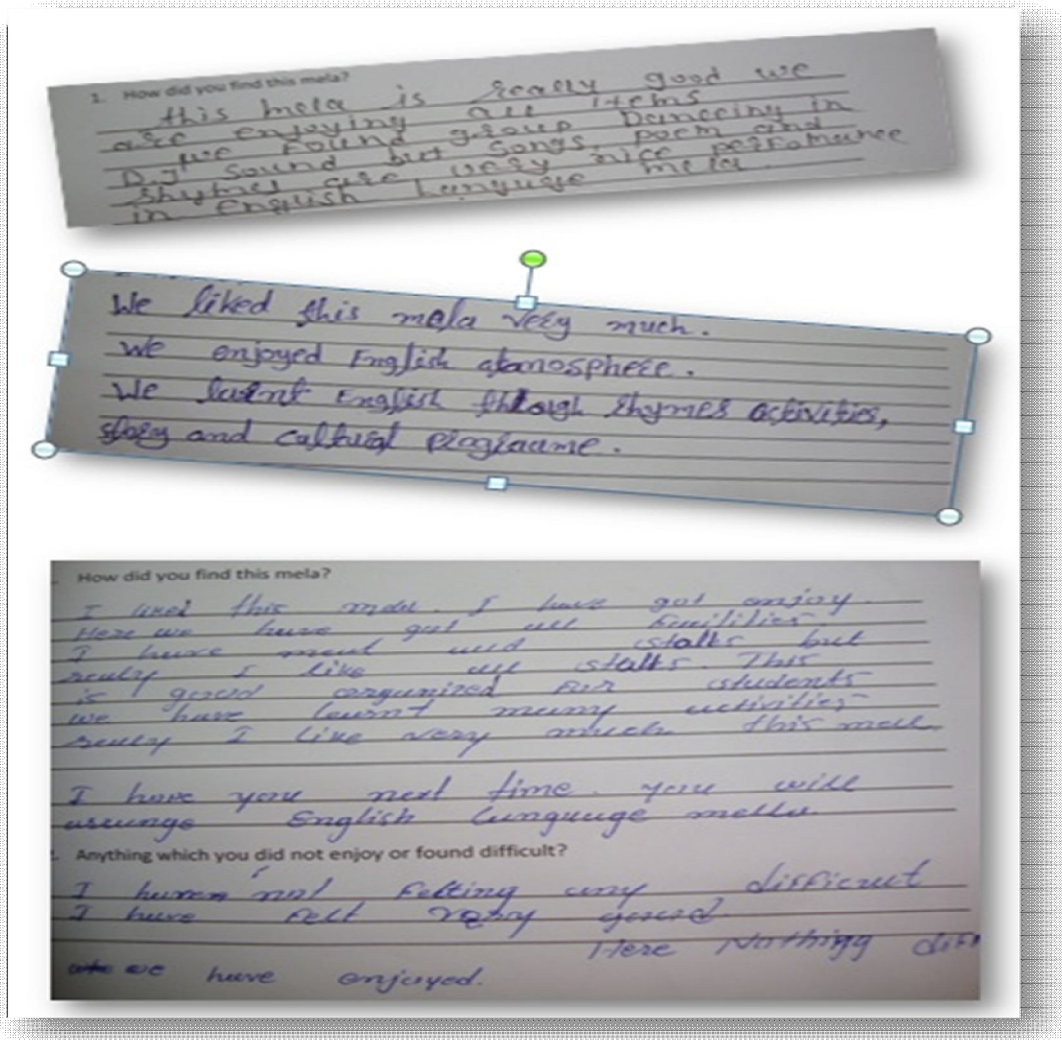 1. How did you find this mela?
this mela is really good we
are enjoying all items
we found group Danceing in
D.J sound but songs, poem and
rhymes are very nice perfomance
in English Languge mela
We liked this mela very much.
We enjoyed English atmosphere.
We learnt English through rhymes activities,
story and cultural programme.
How did you find this mela?
I liked this mela. I have got enjoy.
Here we have got all facilities.
I have stalls but
really I like all stalls. This
is good organized for students
we have learnt many activities
really I like very much this mela.
I hope you next time you will
arrange English Language mella.
Anything which you did not enjoy or found difficult?
I not felting any difficult
I have felt very good
Here Nothing
we have enjoyed.